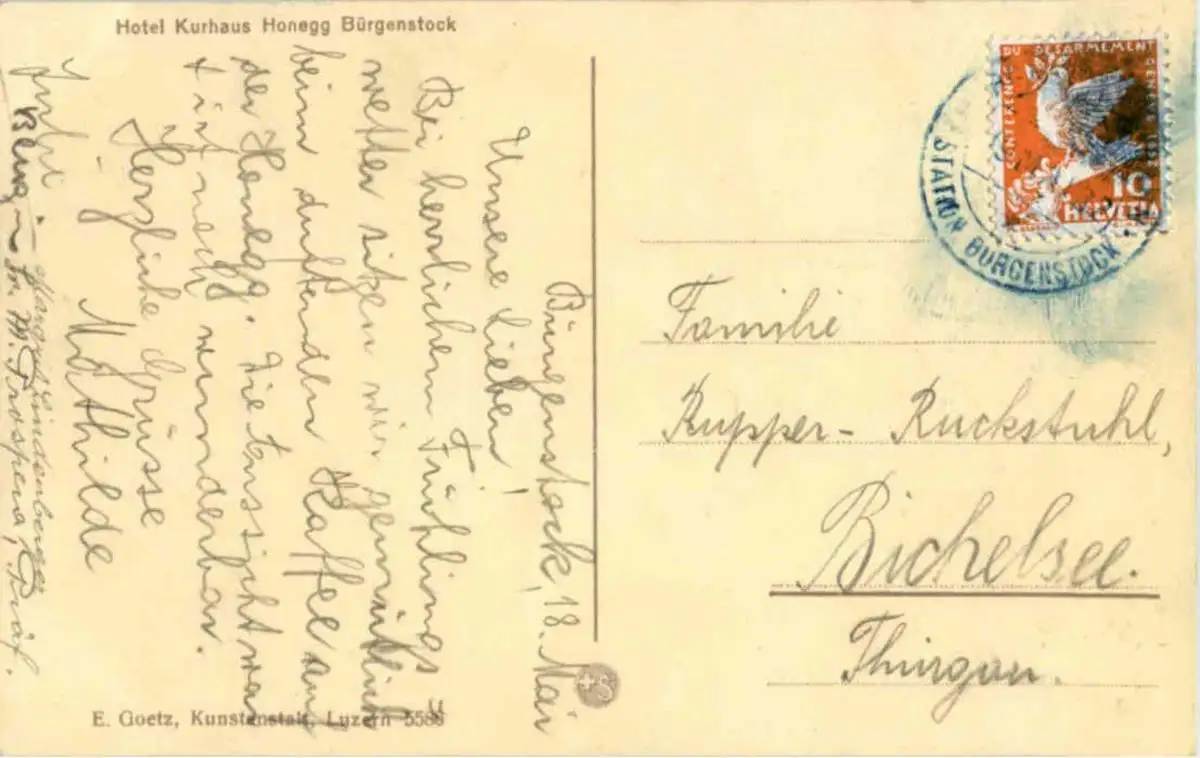 Hotel Kurhaus Honegg Bürgenstock
Bürgenstock, 18. Mai
Unsere Lieben!
Bei herrlichem Frühlings
wetter sitzen wir gemütlich
beim duftenden Kaffee auf
der Honegg. Die Fernsicht war
einfach wunderbar.
Herzliche Grüsse
Mathilde
Lindenberger
M. Prospera, Präf.
E. Goetz, Kunstanstalt, Luzern 5588
CONFERENCE DU DESARMEMENT GENEVE
10
HELVETIA
STATION BÜRGENSTOCK
Familie
Rupper-Ruckstuhl,
Bichelsee.
Thurgau.